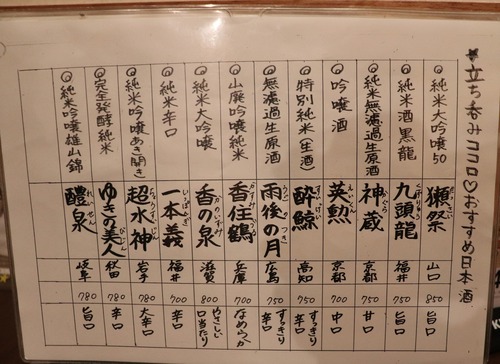 ★立ち呑みココロ♡おすすめ日本酒
◎純米大吟醸50 獺祭 だっさい 山口 850 旨口
◎純米酒黒龍 九頭龍 くずりゅう 福井 750 旨口
◎純米無濾過生原酒 神蔵 かぐら 京都 750 甘口
◎吟醸酒 英勲 京都 700 中口
◎特別純米(生酒) 酔鯨 すいげい 高知 750 すっきり辛口
◎無濾過生原酒 雨後の月 うごのつき 広島 750 すっきり辛口
◎山廃吟醸純米 香住鶴 兵庫 700 なめらか
◎純米大吟醸 香の泉 滋賀 800 やさしい口当たり
◎純米辛口 一本義 いっぽんぎ 福井 700 辛口
◎純米吟醸あき開き 超水神 岩手 780 大辛口
◎完全発酵純米 ゆきの美人 びじん 秋田 780 辛口
◎純米吟醸雄山錦 醴泉 れいせん 岐阜 780 旨口